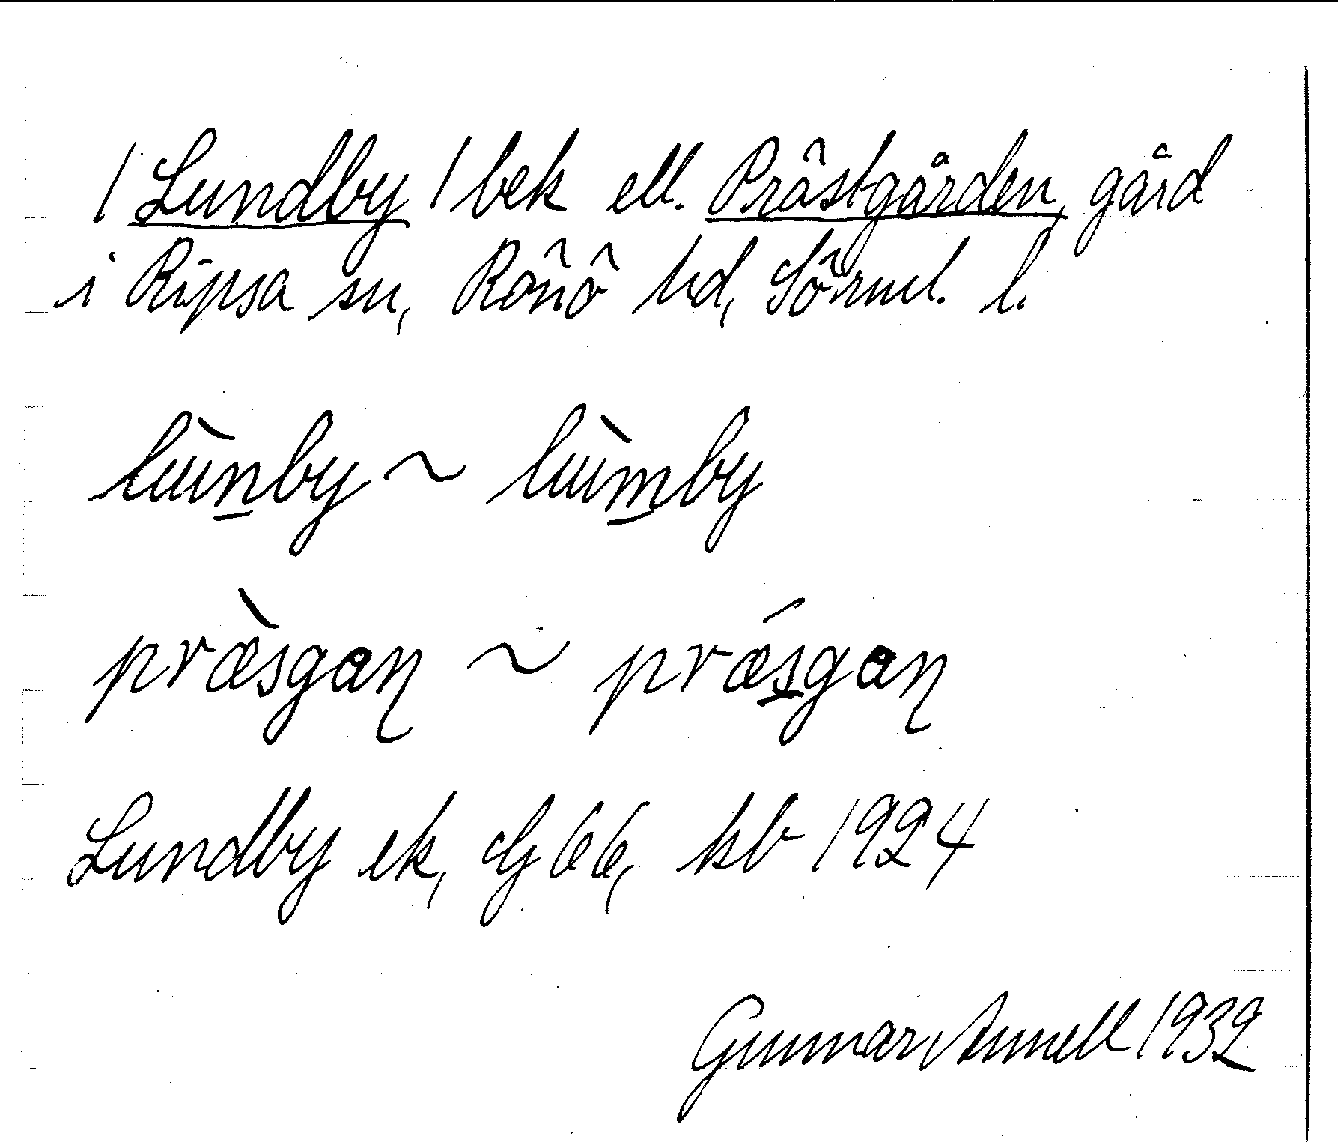 / Lundby / bek ell. Prästgården, gård
i Ripsa sn, Rönö hd, Sörml. l.
lùnby ~ lùmby
præ̀sgaɳ ~ prǽsgaɳ
Lundby ek, Gg 66, kb 1924
Gunnar Annell 1932